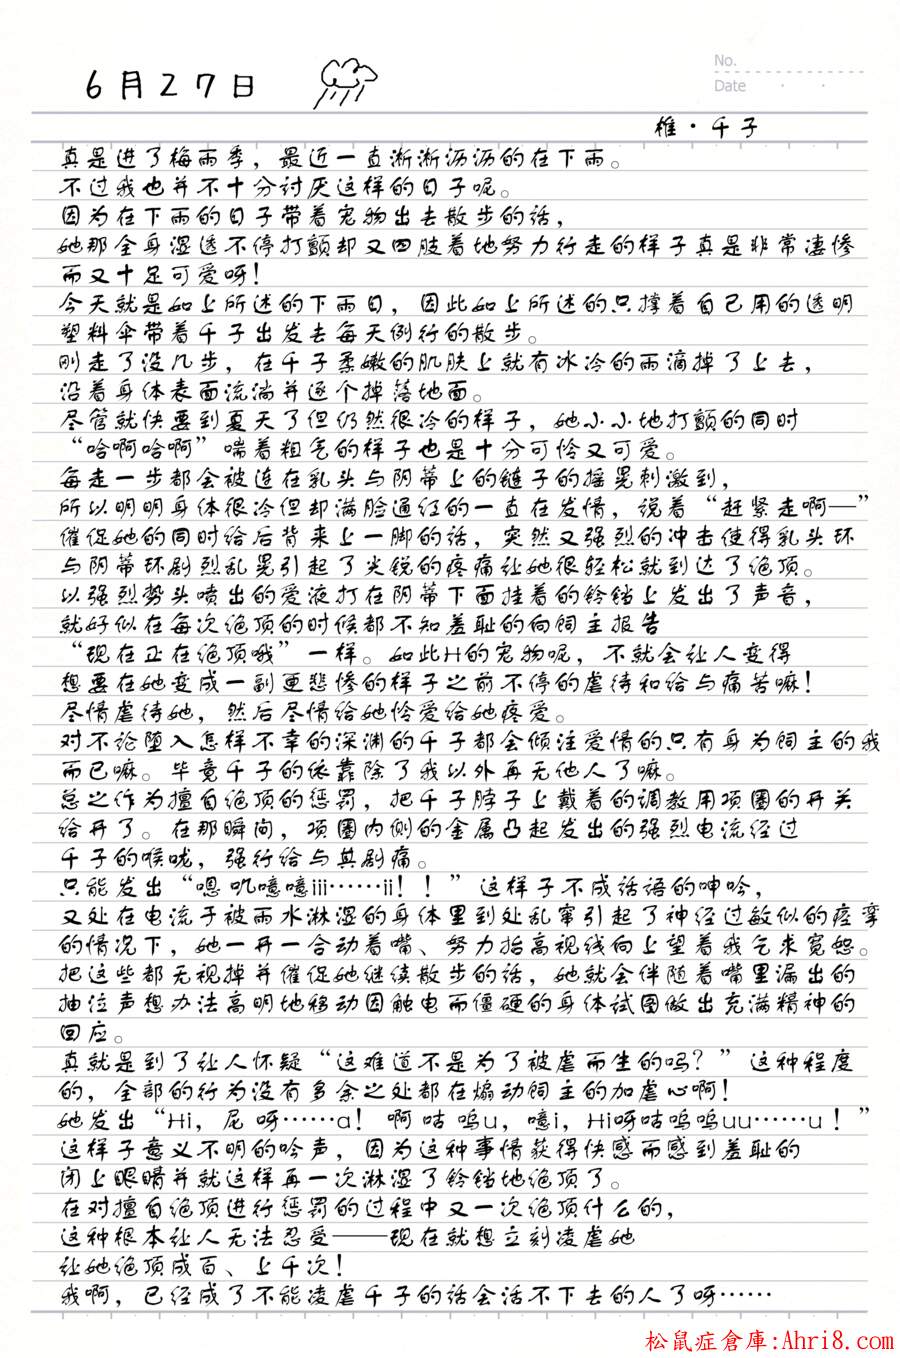 No.
6月27日
Date
椎·千子
真是进了梅雨季，最近一直淅淅沥沥的在下雨。
不过我也并不十分讨厌这样的日子呢。
因为在下雨的日子带着宠物出去散步的话，
她那全身湿透不停打颤却又四肢着地努力行走的样子真是非常凄惨
而又十足可爱呀！
今天就是如上所述的下雨日，因此如上所述的只撑着自己用的透明
塑料伞带着千子出发去每天例行的散步。
刚走了没几步，在千子柔嫩的肌肤上就有冰冷的雨滴掉了上去，
沿着身体表面流淌并逐个掉落地面。
尽管就快要到夏天了但仍然很冷的样子，她小小地打颤的同时
“哈啊哈啊”喘着粗气的样子也是十分可怜又可爱。
每走一步都会被连在乳头与阴蒂上的链子的摇晃刺激到，
所以明明身体很冷但却满脸通红的一直在发情，说着“赶紧走啊—”
催促她的同时给后背来上一脚的话，突然又强烈的冲击使得乳头环
与阴蒂环剧烈乱晃引起了尖锐的疼痛让她很轻松就到达了绝顶。
以强烈势头喷出的爱液打在阴蒂下面挂着的铃铛上发出了声音，
就好似在每次绝顶的时候都不知羞耻的向饲主报告
“现在正在绝顶哦”一样。如此H的宠物呢，不就会让人变得
想要在她变成一副更悲惨的样子之前不停的虐待和给与痛苦嘛！
尽情虐待她，然后尽情给她怜爱给她疼爱。
对不论堕入怎样不幸的深渊的千子都会倾注爱情的只有身为饲主的我
而已嘛。毕竟千子的依靠除了我以外再无他人了嘛。
总之作为擅自绝顶的惩罚，把千子脖子上戴着的调教用项圈的开关
给开了。在那瞬间，项圈内侧的金属凸起发出的强烈电流经过
千子的喉咙，强行给与其剧痛。
只能发出“嗯叽噫噫iii……ii！！”这样子不成话语的呻吟，
又处在电流于被雨水淋湿的身体里到处乱窜引起了神经过敏似的痉挛
的情况下，她一开一合动着嘴、努力抬高视线向上望着我乞求宽恕。
把这些都无视掉并催促她继续散步的话，她就会伴随着嘴里漏出的
抽泣声想办法高明地移动因触电而僵硬的身体试图做出充满精神的
回应。
真就是到了让人怀疑“这难道不是为了被虐而生的吗？”这种程度
的，全部的行为没有多余之处都在煽动饲主的加虐心啊！
她发出“Hi，尼呀……a！啊咕呜u，噫i，Hi呀咕呜呜uu……u！”
这样子意义不明的吟声，因为这种事情获得快感而感到羞耻的
闭上眼睛并就这样再一次淋湿了铃铛地绝顶了。
在对擅自绝顶进行惩罚的过程中又一次绝顶什么的，
这种根本让人无法忍受——现在就想立刻凌虐她
让她绝顶成百、上千次！
我啊，已经成了不能凌虐千子的话会活不下去的人了呀……
松鼠症倉庫:Ahri8.com